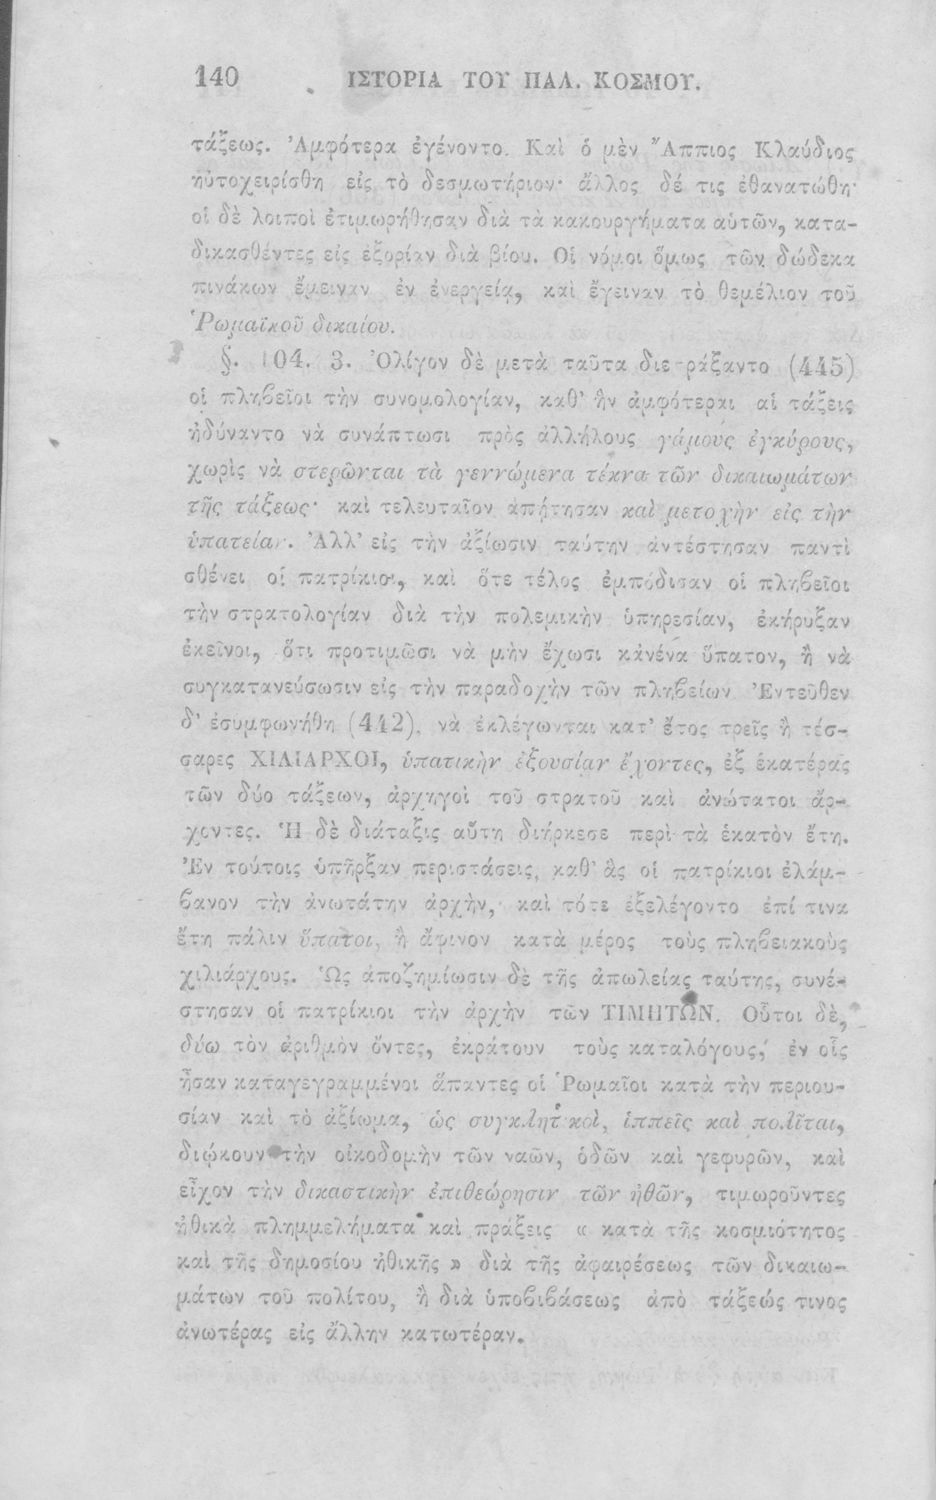 140 ΙΣΤΟΡΙΑ ΤΟΥ ΠΑΛ. ΚΟΣΜΟΥ.
τάξεως. Ἀμφότερα ἐγένοντο. Καὶ ὁ μὲν Ἄππιος Κλαύδιος
ηὐτοχειρίσθη εἰς τὸ δεσμωτήριον· ἄλλος δέ τις ἐθανατώθη·
οἱ δὲ λοιποὶ ἐτιμωρήθησαν διὰ τὰ κακουργήματα αὐτῶν, κατα-
δικασθέντες εἰς ἐξορίαν διὰ βίου. Οἱ νόμοι ὅμως τῶν δώδεκα
πινάκων ἔμειναν ἐν ἐνεργείᾳ, καὶ ἔγειναν τὸ θεμέλιον τοῦ
Ῥωμαϊκοῦ δικαίου.
§. 104. 3. Ὀλίγον δὲ μετὰ ταῦτα διεπράξαντο (445)
οἱ πληβεῖοι τὴν συνομολογίαν, καθ' ἣν ἀμφότεραι αἱ τάξεις
ἠδύναντο νὰ συνάπτωσι πρὸς ἀλλήλους γάμους ἐγκύρους,
χωρὶς νὰ στερῶνται τὰ γεννώμενα τέκνα τῶν δικαιωμάτων
τῆς τάξεως· καὶ τελευταῖον ἀπῄτησαν καὶ μετοχὴν εἰς τὴν
ὑπατείαν. Ἀλλ' εἰς τὴν ἀξίωσιν ταύτην ἀντέστησαν παντὶ
σθένει οἱ πατρίκιοι, καὶ ὅτε τέλος ἐμπόδισαν οἱ πληβεῖοι
τὴν στρατολογίαν διὰ τὴν πολεμικὴν ὑπηρεσίαν, ἐκήρυξαν
ἐκεῖνοι, ὅτι προτιμῶσι νὰ μὴν ἔχωσι κἀνένα ὕπατον, ἢ νὰ
συγκατανεύσωσιν εἰς τὴν παραδοχὴν τῶν πληβείων. Ἐντεῦθεν
δ' ἐσυμφωνήθη (442), νὰ ἐκλέγωνται κατ' ἔτος τρεῖς ἢ τέσ-
σαρες ΧΙΛΙΑΡΧΟΙ, ὑπατικὴν ἐξουσίαν ἔχοντες, ἐξ ἑκατέρας
τῶν δύο τάξεων, ἀρχηγοὶ τοῦ στρατοῦ καὶ ἀνώτατοι ἄρ-
χοντες. Ἡ δὲ διάταξις αὕτη διήρκεσε περὶ τὰ ἑκατὸν ἔτη.
Ἐν τούτοις ὑπῆρξαν περιστάσεις, καθ' ἃς οἱ πατρίκιοι ἐλάμ-
βανον τὴν ἀνωτάτην ἀρχὴν, καὶ τότε ἐξελέγοντο ἐπί τινα
ἔτη πάλιν ὕπατοι, ἢ ἄφινον κατὰ μέρος τοὺς πληβειακοὺς
χιλιάρχους. Ὡς ἀποζημίωσιν δὲ τῆς ἀπωλείας ταύτης, συνέ-
στησαν οἱ πατρίκιοι τὴν ἀρχὴν τῶν ΤΙΜΗΤΩΝ. Οὗτοι δὲ,
δύω τὸν ἀριθμὸν ὄντες, ἐκράτουν τοὺς καταλόγους, ἐν οἷς
ἦσαν καταγεγραμμένοι ἅπαντες οἱ Ῥωμαῖοι κατὰ τὴν περιου-
σίαν καὶ τὸ ἀξίωμα, ὡς συγκλητικοὶ, ἱππεῖς καὶ πολῖται,
διῴκουν τὴν οἰκοδομὴν τῶν ναῶν, ὁδῶν καὶ γεφυρῶν, καὶ
εἶχον τὴν δικαστικὴν ἐπιθεώρησιν τῶν ἠθῶν, τιμωροῦντες
ἠθικὰ πλημμελήματα καὶ πράξεις « κατὰ τῆς κοσμιότητος
καὶ τῆς δημοσίου ἠθικῆς » διὰ τῆς ἀφαιρέσεως τῶν δικαιω-
μάτων τοῦ πολίτου, ἢ διὰ ὑποβιβάσεως ἀπὸ τάξεώς τινος
ἀνωτέρας εἰς ἄλλην κατωτέραν.